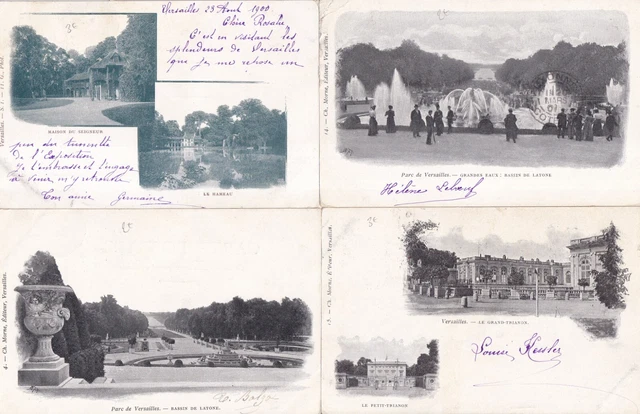 Versailles 23 Août 1900
Chère Rosalie
C'est en visitant les
splendeurs de Versailles
que je me repose un
MAISON DU SEIGNEUR
peu du tumulte
de l'Exposition
Je t'embrasse et t'engage
à venir m'y retrouver
Ton amie Germaine
LE HAMEAU
14. — Ch. Morne, Éditeur, Versailles.
Parc de Versailles. — GRANDES EAUX : BASSIN DE LATONE
Hélène
4. — Ch. Morne, Éditeur, Versailles.
Parc de Versailles. — BASSIN DE LATONE.
15. — Ch. Morne, Éditeur, Versailles.
Versailles. — LE GRAND-TRIANON.
Louise Kessler
LE PETIT-TRIANON